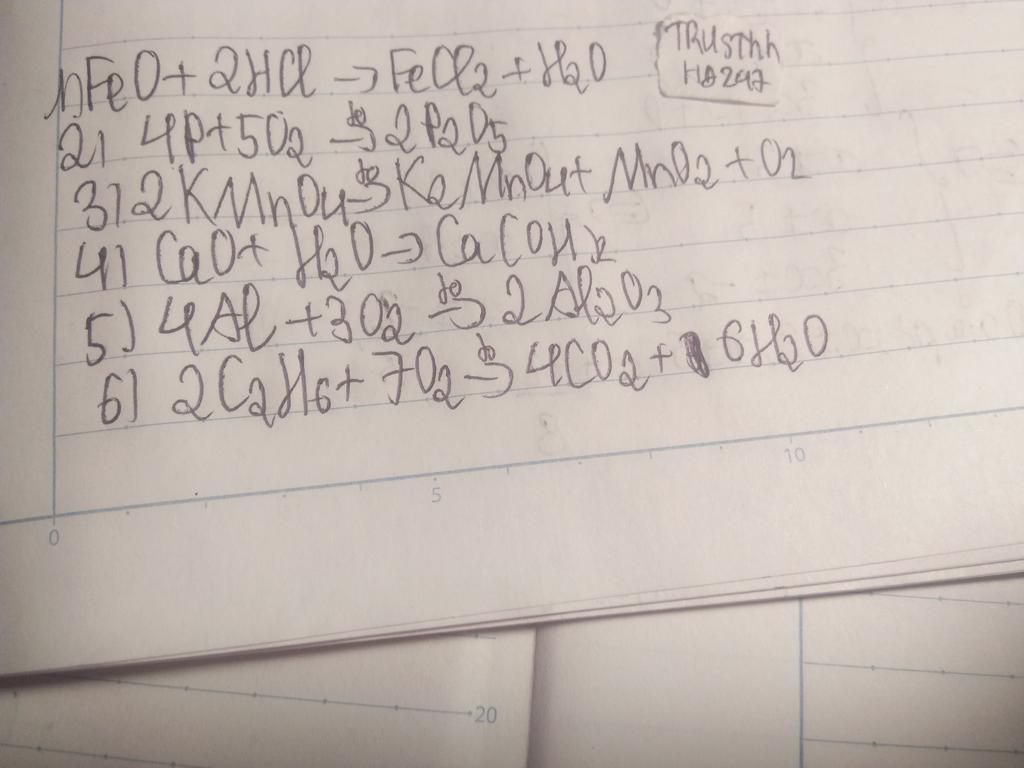 1) FeO + 2HCl → FeCl2 + H2O
TRUSThh
HD247
2) 4P + 5O2 →to 2P2O5
3) 2KMnO4 →to K2MnO4 + MnO2 + O2
4) CaO + H2O → Ca(OH)2
5) 4Al + 3O2 →to 2Al2O3
6) 2C2H6 + 7O2 →to 4CO2 + 6H2O
0
5
10
20